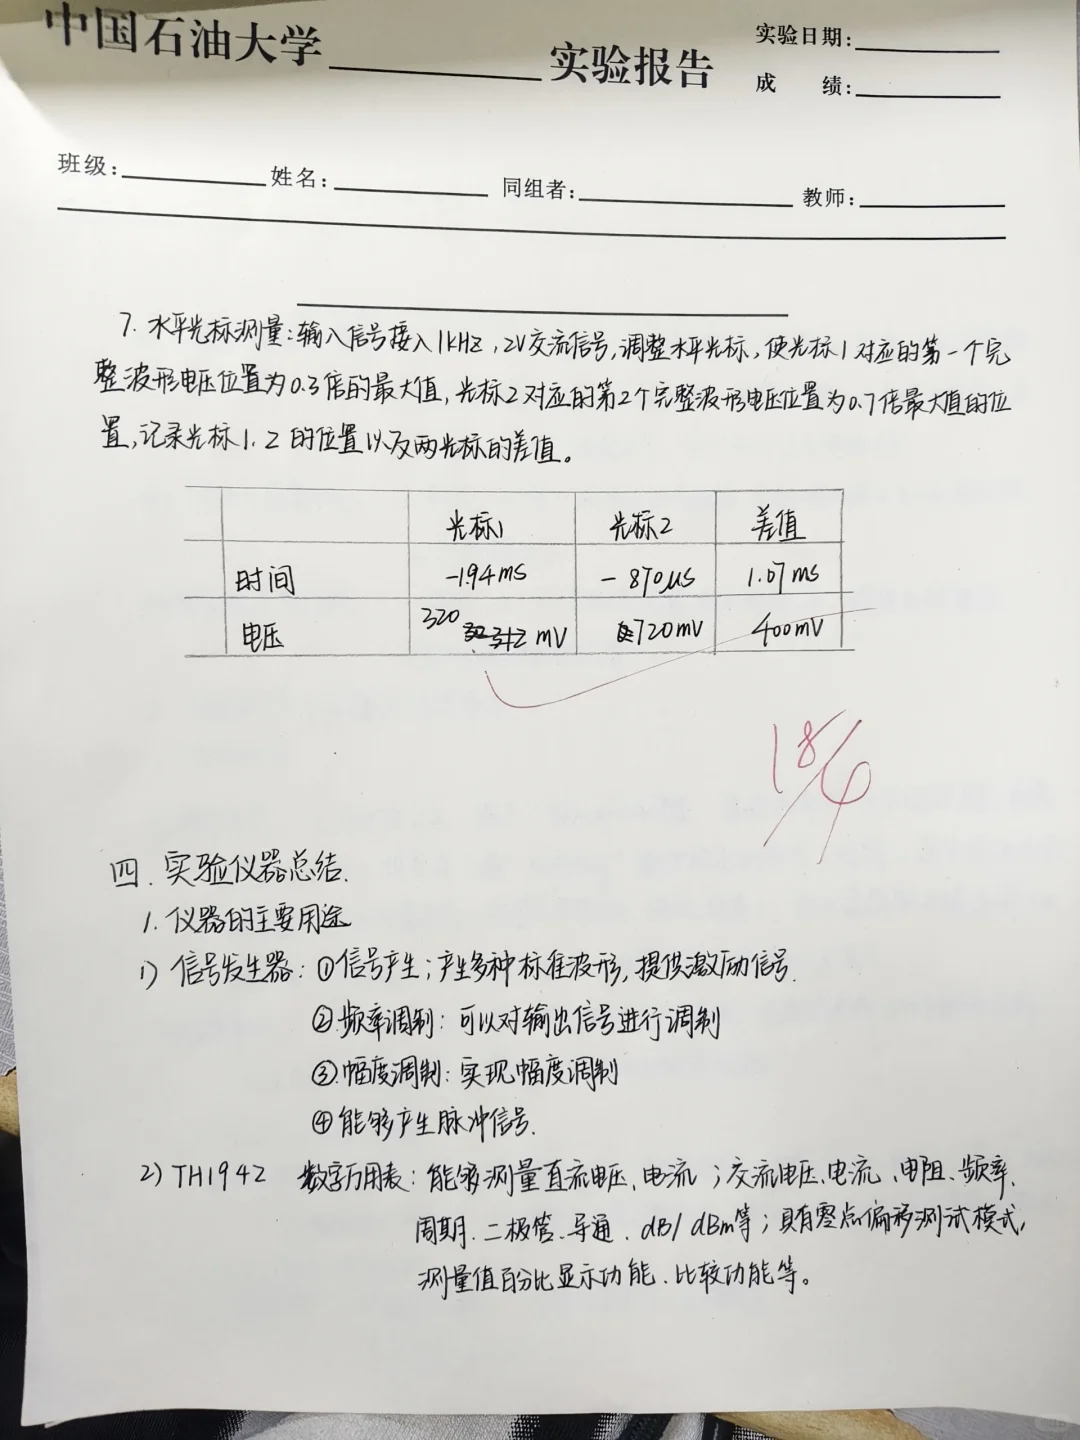 中国石油大学 实验报告
实验日期:
成 绩:
班级: 姓名: 同组者: 教师:
7. 水平光标测量:输入信号接入1kHz,2V交流信号,调整水平光标,使光标1对应的第一个完
整波形电压位置为0.3倍的最大值,光标2对应的第2个完整波形电压位置为0.7倍最大值的位
置,记录光标1.2的位置以及两光标的差值。
光标1 光标2 差值
时间 -1.94ms -870μs 1.07ms
电压 320 mV 720mV 400mV
四. 实验仪器总结.
1. 仪器的主要用途
1) 信号发生器: ①信号产生;产生多种标准波形,提供激励信号.
②频率调制: 可以对输出信号进行调制
③幅度调制: 实现幅度调制
④能够产生脉冲信号.
2) TH1942 数字万用表: 能够测量直流电压、电流;交流电压、电流、电阻、频率、
周期、二极管、导通、dB/dBm等;具有零点偏移测试模式,
测量值百分比显示功能、比较功能等。